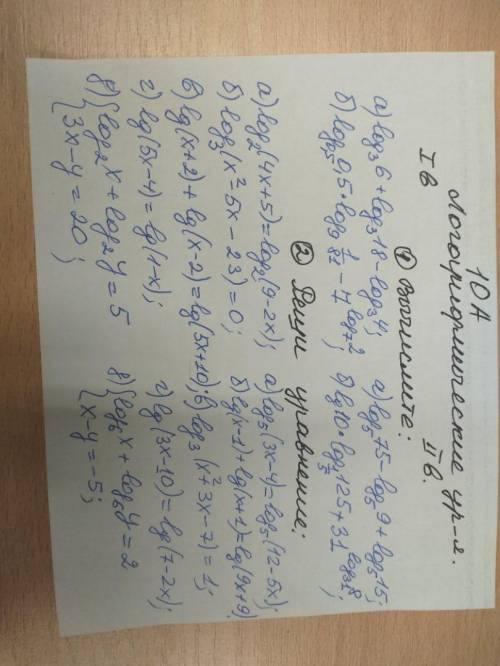 10А
Логарифмические ур-я.
I в    II в.
① Вычислите:
а) log₃6 + log₃18 - log₃4;    а) log₅75 - log₅9 + log₅15;
б) log₀,₂₅0,5 · log₉ 1/81 - 7^(log₇2);    б) lg10 · log_(1/5)125 + 31^(log₃₁8);
② Реши уравнение:
а) log₂(4x+5) = log₂(9-2x);    а) log₅(3x-4) = log₅(12-5x);
б) log₃(x²-5x-23) = 0;    б) lg(x-1) + lg(x+1) = lg(9x+9)
в) lg(x+2) + lg(x-2) = lg(5x+10);    в) log₃(x²+3x-7) = 1;
г) lg(5x-4) = lg(1-x);    г) lg(3x-10) = lg(7-2x);
д) { log₂x + log₂y = 5    д) { log₆x + log₆y = 2
3x-y = 20;    x-y = -5;